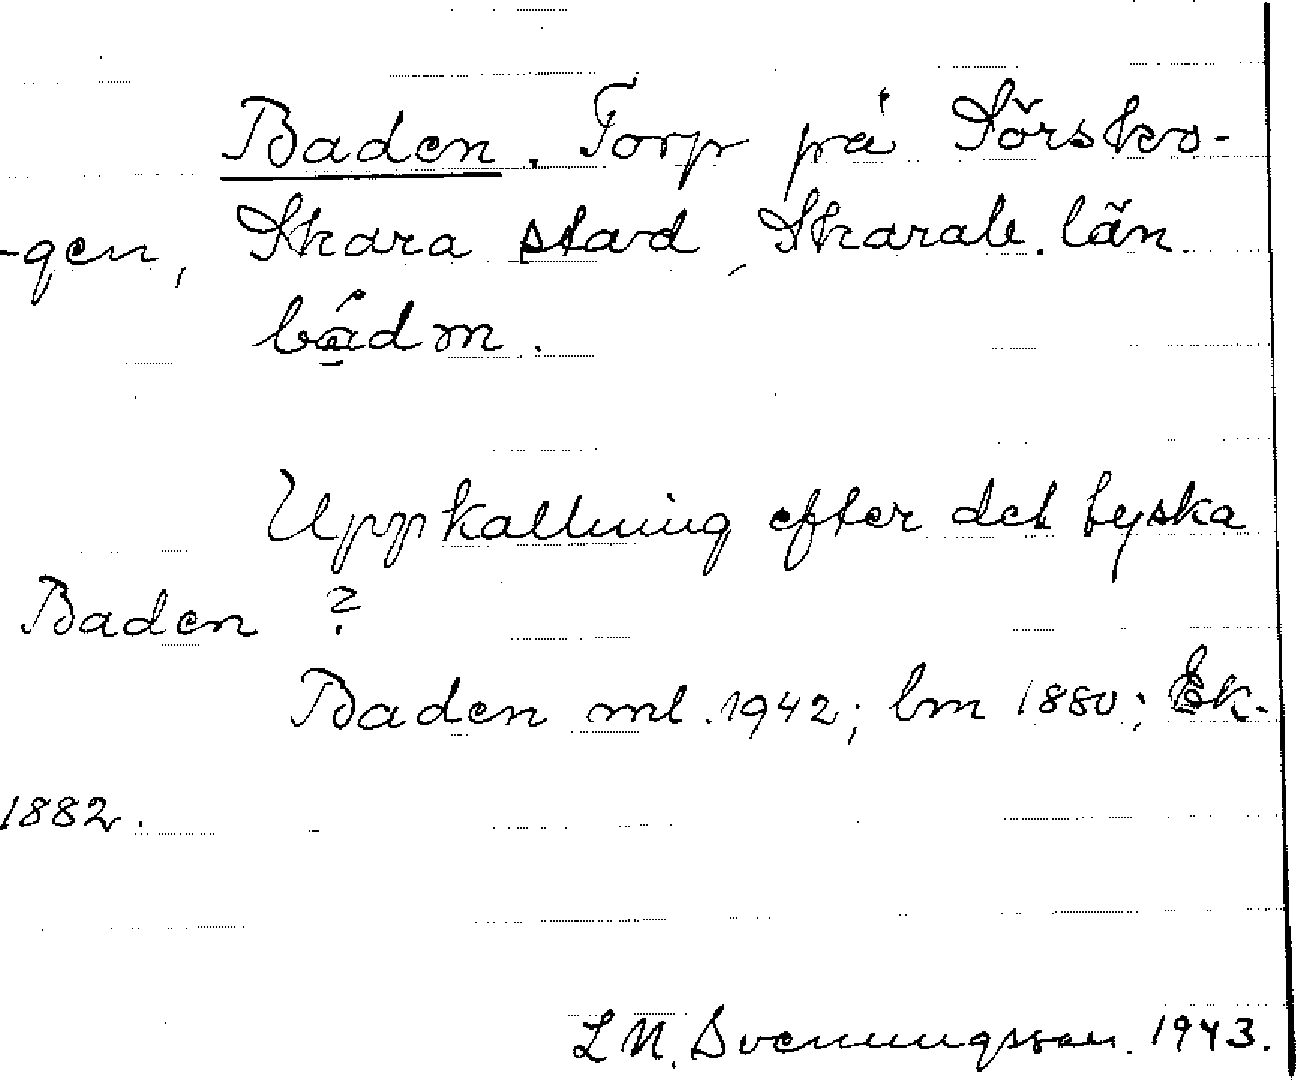 Baden. Torp på Sörsko-
-gen, Skara stad, Skarab. län.
bádm.
Uppkallning efter det tyska
Baden ?
Baden ml. 1942; bm 1880; Ek.
1882.
L N. Svenungsson. 1943.